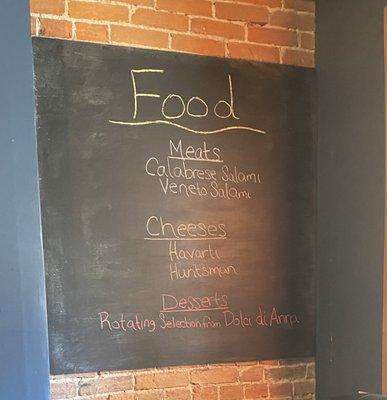 Food
Meats
Calabrese Salami
Veneto Salami
Cheeses
Havarti
Huntsman
Desserts
Rotating Selection from Dolci di Anna